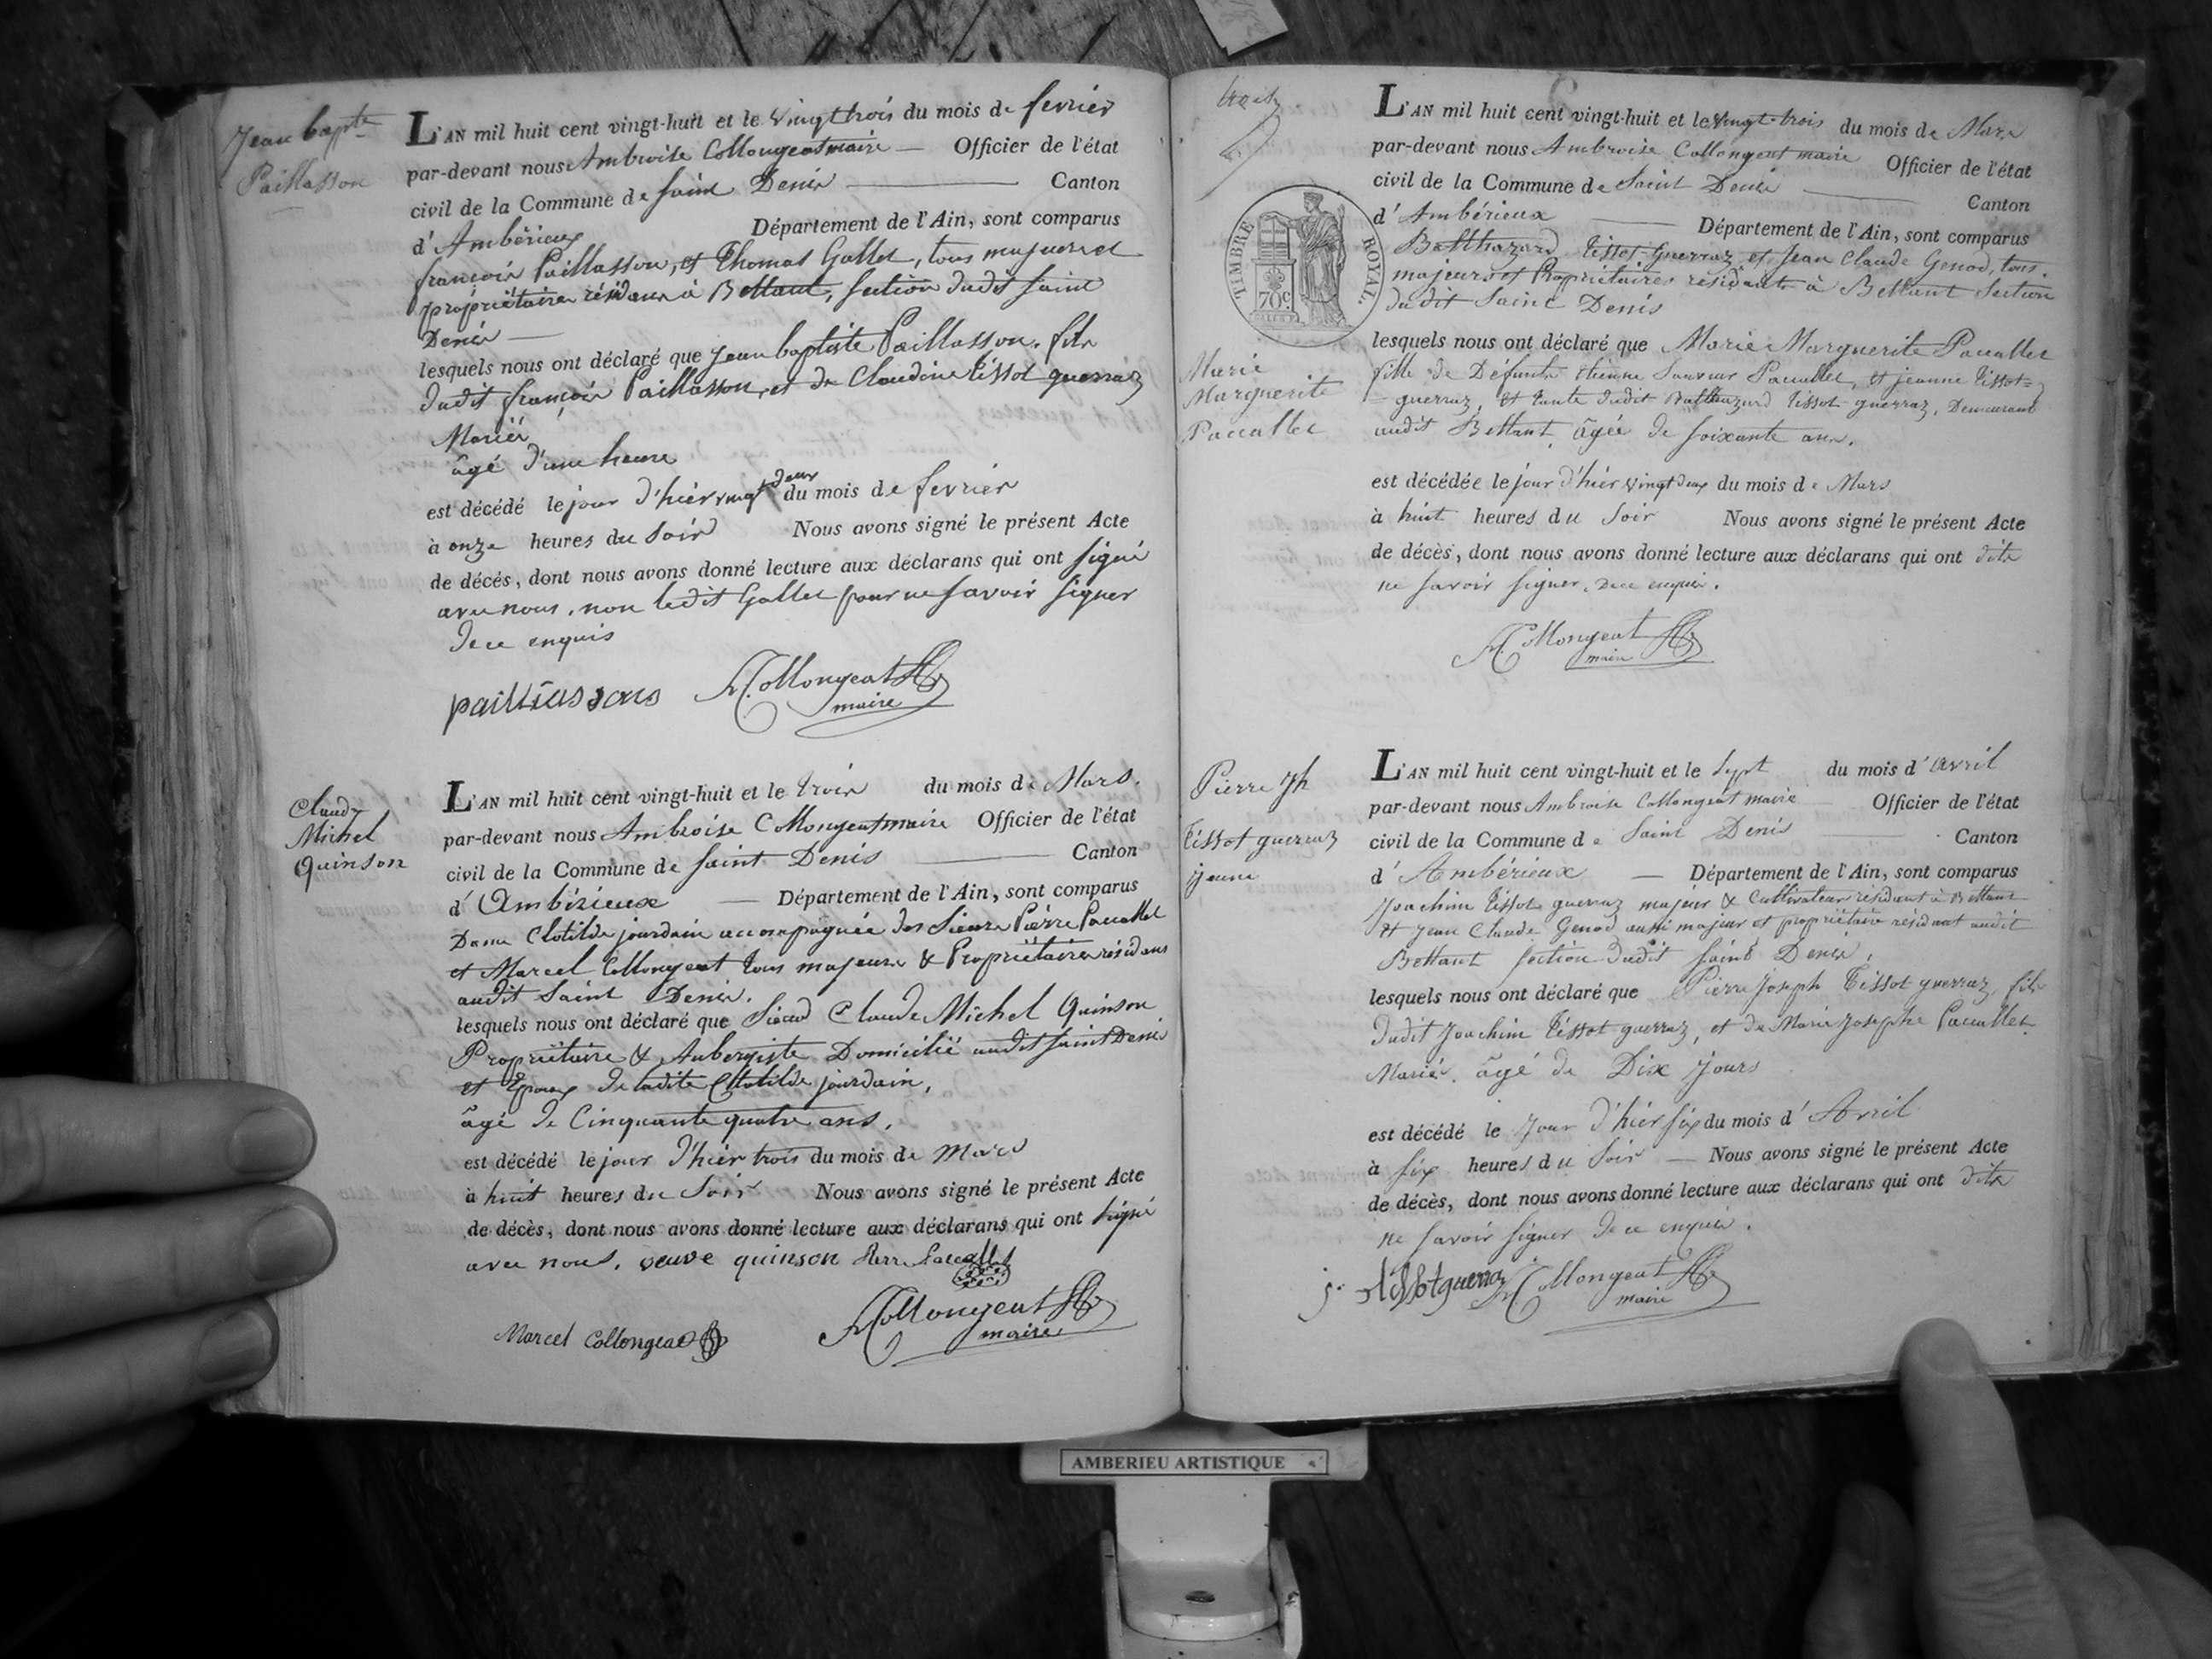 Jean bapte
Paillasson
L'AN mil huit cent vingt-huit et le vingt trois du mois de fevrier
par-devant nous Ambroise Collongeat maire — Officier de l'état
civil de la Commune de Saint Denis — Canton
d'Ambérieux Département de l'Ain, sont comparus
françois Paillasson, et Thomas Gallet, tous majeurs et
propriétaires résidans à Bettant, section dudit Saint
Denis —
lesquels nous ont déclaré que Jean baptiste Paillasson, fils
dudit françois Paillasson, et de Claudine Tissot guerraz
Mariés
âgé d'une heure
est décédé le jour d'hier vingt deux du mois de fevrier
à onze heures du Soir Nous avons signé le présent Acte
de décés, dont nous avons donné lecture aux déclarans qui ont signé
avec nous, non ledit Gallet pour ne savoir signer
de ce enquis
pailliassons A. Collongeat
maire
Claude
Michel
Quinson
L'AN mil huit cent vingt-huit et le trois du mois de Mars.
par-devant nous Ambroise Collongeat maire Officier de l'état
civil de la Commune de Saint Denis — Canton
d'Ambérieux — Département de l'Ain, sont comparus
Dame Clotilde jourdain accompagnée des Sieurs Pierre Pacallet
et Marcel Collongeat tous majeurs & Propriétaires résidans
audit Saint Denis.
lesquels nous ont déclaré que Sieur Claude Michel Quinson
Propriétaire & Aubergiste Domicilié audit Saint Denis
et Epoux de ladite Clotilde jourdain,
âgé de Cinquante quatre ans.
est décédé le jour d'hier trois du mois de Mars
à huit heures du Soir Nous avons signé le présent Acte
de décès, dont nous avons donné lecture aux déclarans qui ont signé
avec nous. veuve quinson Pierre Pacallet
A. Collongeat
maire
Marcel Collongeat
TIMBRE ROYAL.
70c.
Marie
Marguerite
Pacallet
L'AN mil huit cent vingt-huit et le vingt-trois du mois de Mars
par-devant nous Ambroise Collongeat maire Officier de l'état
civil de la Commune de Saint Denis — Canton
d'Ambérieux — Département de l'Ain, sont comparus
Balthazard Tissot-Guerraz et Jean Claude Genod, tous
majeurs et Propriétaires résidants à Bettant Section
dudit Saint Denis
lesquels nous ont déclaré que Marie Marguerite Pacallet
fille de Défunts Etienne Pacallet, et jeanne Tissot-
guerraz, et tante dudit Balthazard Tissot-guerraz, Demeurant
audit Bettant, âgée de soixante ans.
est décédée le jour d'hier vingt deux du mois de Mars
à huit heures du Soir Nous avons signé le présent Acte
de décès, dont nous avons donné lecture aux déclarans qui ont dits
ne savoir signer, de ce enquis.
A. Collongeat
maire
Pierre Jh
Tissot guerraz
jeune
L'AN mil huit cent vingt-huit et le Sept du mois d'avril
par-devant nous Ambroise Collongeat maire Officier de l'état
civil de la Commune de Saint Denis — Canton
d'Ambérieux — Département de l'Ain, sont comparus
Joachim Tissot guerraz majeur & Cultivateur résidant à Bettant
et Jean Claude Genod aussi majeur et propriétaire résidant audit
Bettant section dudit Saint Denis.
lesquels nous ont déclaré que Pierre Joseph Tissot guerraz, fils
dudit Joachim Tissot guerraz, et de Marie Josephe Pacallet
Mariés. âgé de Dix Jours
est décédé le Jour d'hier six du mois d'Avril
à six heures du Soir — Nous avons signé le présent Acte
de décès, dont nous avons donné lecture aux déclarans qui ont dits
ne savoir signer de ce enquis.
j. tissot guerra A. Collongeat
maire
AMBERIEU ARTISTIQUE